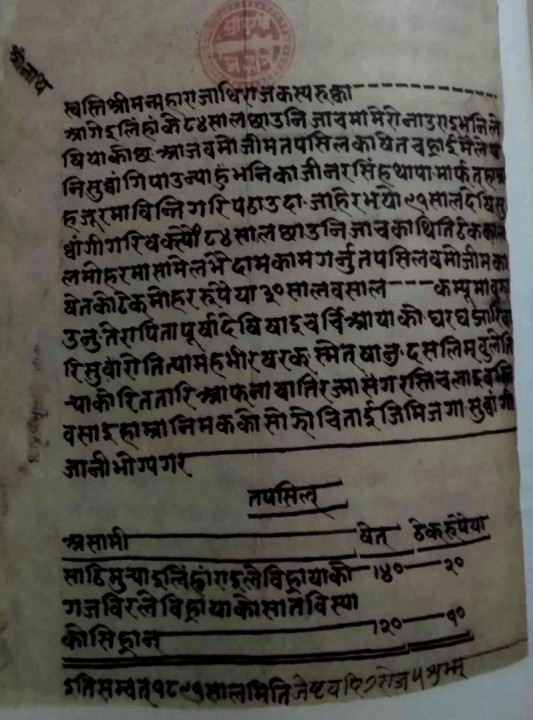 श्रीनाथ
स्वस्तिश्रीमन्महाराजाधिराजकस्यरुक्का
आगेइलिंहांके ८४ सालछाउनिजाचमामेरोनाउराइभनिले
षियाकोछ आजवमोजीमतपसिलकाषेतचह्राईमैले
निसुवांगिपाउन्याहुंभनिकाजीनरसिंहथापामार्फत्
हजूरमाविन्तिगरिपठाउदा जाहेरभयो ९१ सालदेषि
वांगीगरिवक्स्यौं ८४ सालछाउनिजाचकाथितिठेक
लमोहरमासामेलभैदामकामगर्नुतपसिलवमोजीमका
षेतकोठेकमोहररुपैया ३० सालवसाल कम्पूमा
उनु तेरापितापूर्षादेषिषाइचर्चिआयाकोघर
रिसुवारोतित्यामहभीरषरकस्मेतषानु दसलिम
न्याकोरिततारिआफनाषातिरज्मासंगरस्तिचलाइ
वसाइहाम्रानिमककोसोझोचिताईजिमिजगासुवांगी
जानीभोग्यगर
तपसिल
असामी षेत ठेकरुपैया
साठिमुन्याइलिंहांराइलेविह्रायाको ।४० २०
गजविरलेविह्रायाकोसातविस्या
कोसिह्रान ।२० १०
इतिसम्वत् १८९१ सालमितिजेष्टवदि ७ रोज ५ शुभम्